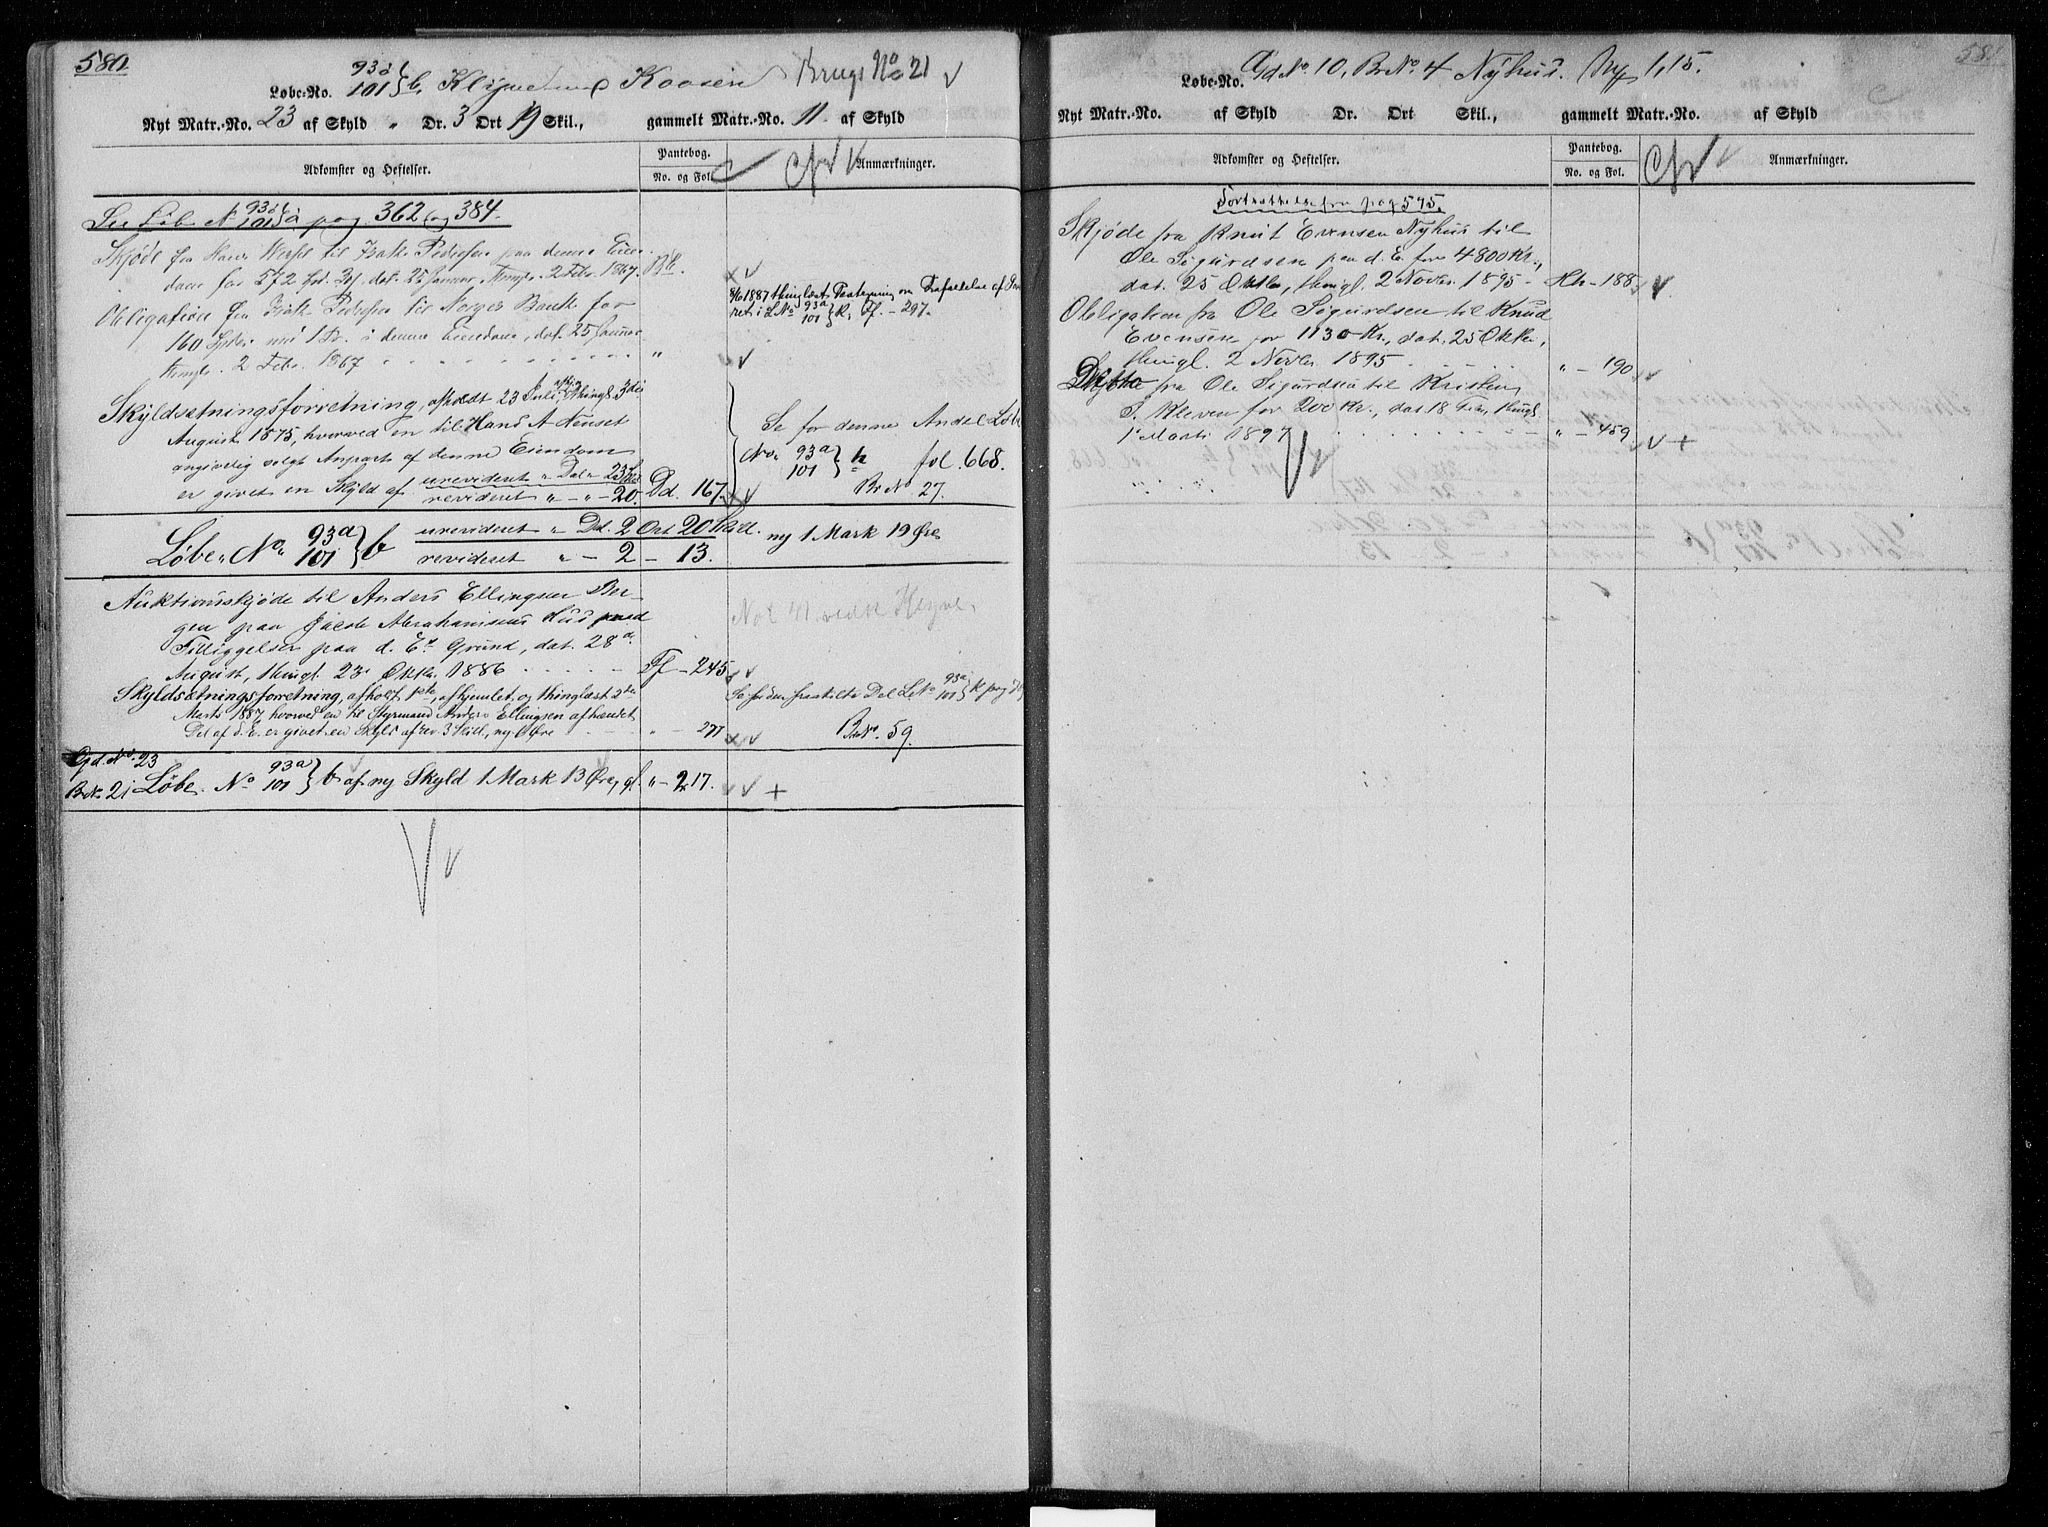 580.
Løbe-No. 93a/101 } b, Kaasen Brugs No 21
Nyt Matr.-No. 23 af Skyld " Dr. 3 Ort 19 Skil., gammelt Matr.-No. 11. af Skyld
Adkomster og Heftelser. Pantebog. No. og Fol. Cfr Anmærkninger.
Se Løbe No 93a/101 } a pag. 362 og 384.
Skjøde fra Hans til Peder paa denne Eien-
dom for 572 Spd. dat. 25 Januar, Tingl. 2 Febr. 1867. B 8.
Obligation fra til Norges Bank for
160 Spdlr. mod 1 Pr. i denne Eiendom, dat. 25 Januar
Tingl. 2 Febr. 1867 "
8/6 1887 thinglæst Paategning om Frafaldelse af Pan-
ret i L No 93a/101 } k, Ff. - 297.
Skyldsætningsforretning, afholdt 23 Juli, Thingl. 3die
August 1875, hvorved en til Hans A
angivelig solgt Anpart af denne Eiendom
er givet en Skyld af urevideret " Dal " 23 Skil
revideret " - " - 20. Dd. 167.
Se for denne Andel Løbe
No. 93a/101 } h fol. 668.
Br No. 27.
Løbe No. 93a/101 } b urevideret " Dd. 2 Ort 20 Skil. ny 1 Mark 19 Øre
revideret " - 2 - 13.
Auktionsskjøde til Anders Ellingsen Ber-
gen paa Jacob Abrahamsens Hus med
Tilliggelser paa d. Es Grund, dat. 28de
August, thingl. 23. Oktbr. 1886 Ff - 245
Skyldsætningsforretning, afholt 1ste, afhjemlet og thinglæst 2den
Marts 1887 hvorved en til Styrmand Anders Ellingsen afhændet
Del af d. E. er givet en Skyld af rev. 3 Skill, ny 6 Øre " - 277
Se for den fraskilte Del L No 93a/101 } k pag
Br No. 59.
Gd. No. 23
Br No 21 Løbe. No 93a/101 } b af ny Skyld 1 Mark 13 Øre, gl. " - 2 17.
581
Løbe-No. Gd No. 10, Br No. 4 Nyhus. Ny 1,15.
Nyt Matr.-No. af Skyld Dr. Ort Skil., gammelt Matr.-No. af Skyld
Adkomster og Heftelser. Pantebog. No. og Fol. Cfr Anmærkninger.
Fortsættelse fra pag 595.
Skjøde fra Knut Evensen Nyhus til
Ole Sigurdsen paa d. E. for 4800 Kr.,
dat. 25 Oktbr, thingl. 2 Novbr. 1895 - Hh - 188
Obligation fra Ole Sigurdsen til Knud
Evensen for 1130 Kr., dat. 25 Oktbr,
thingl. 2 Novbr. 1895 " - 190
Ditto fra Ole Sigurdsen til Kristen
J. Kleven for 200 Kr., dat. 18 Febr., thingl.
1 Marts 1897 " - 459